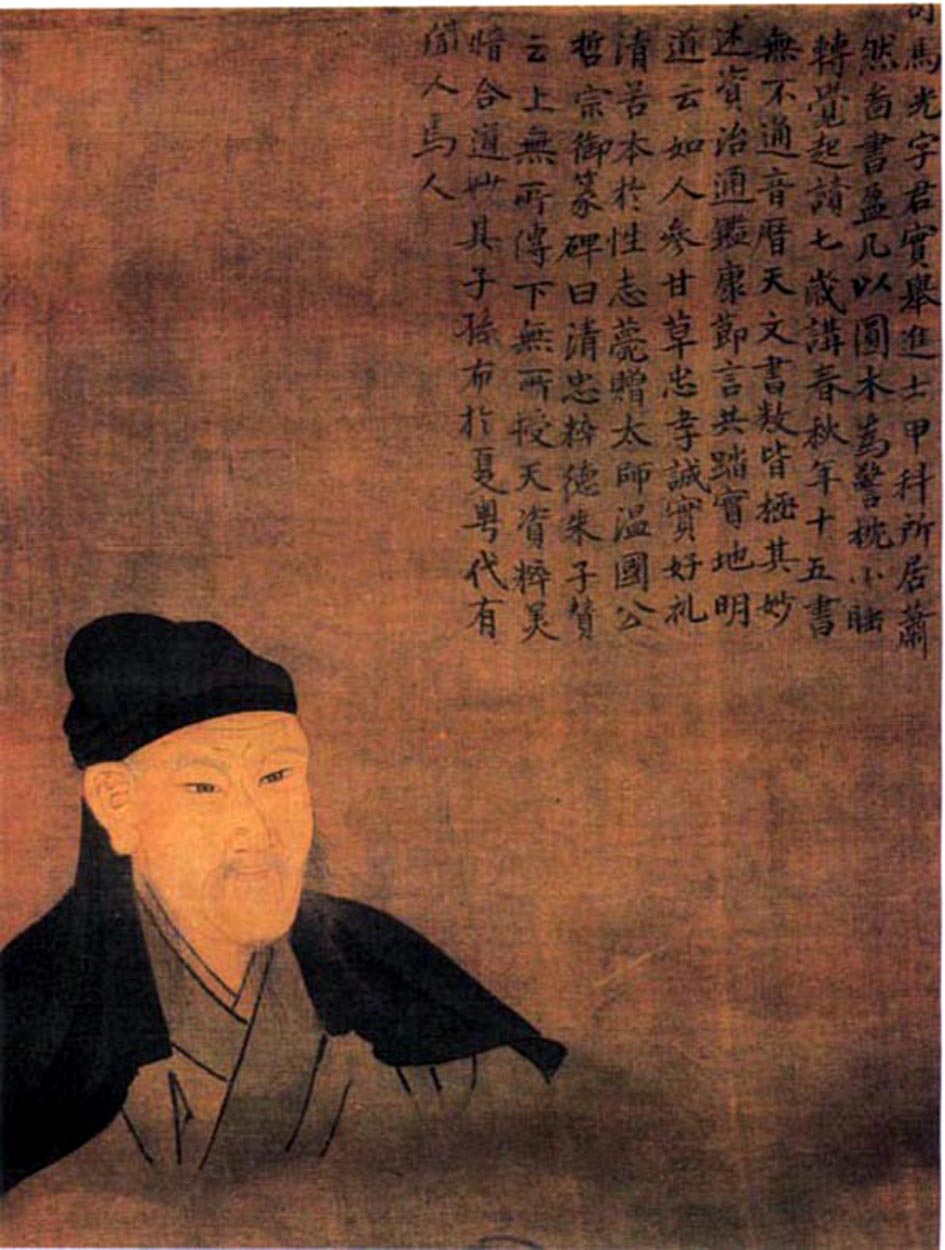 司馬光字君實舉進士甲科所居蕭
然啚書盈几以圓木為警枕小睡
轉覺起讀七歲講春秋年十五書
無不通音曆天文書数皆極其妙
述資治通鑑康節言其踏實地明
道云如人參甘草忠孝誠實好礼
清苦本於性志薨贈太師溫國公
哲宗御篆碑曰清忠粹德朱子賛
云上無所傳下無所授天資粹美
暗合道妙其子孫布於夏粤代有
人馬人